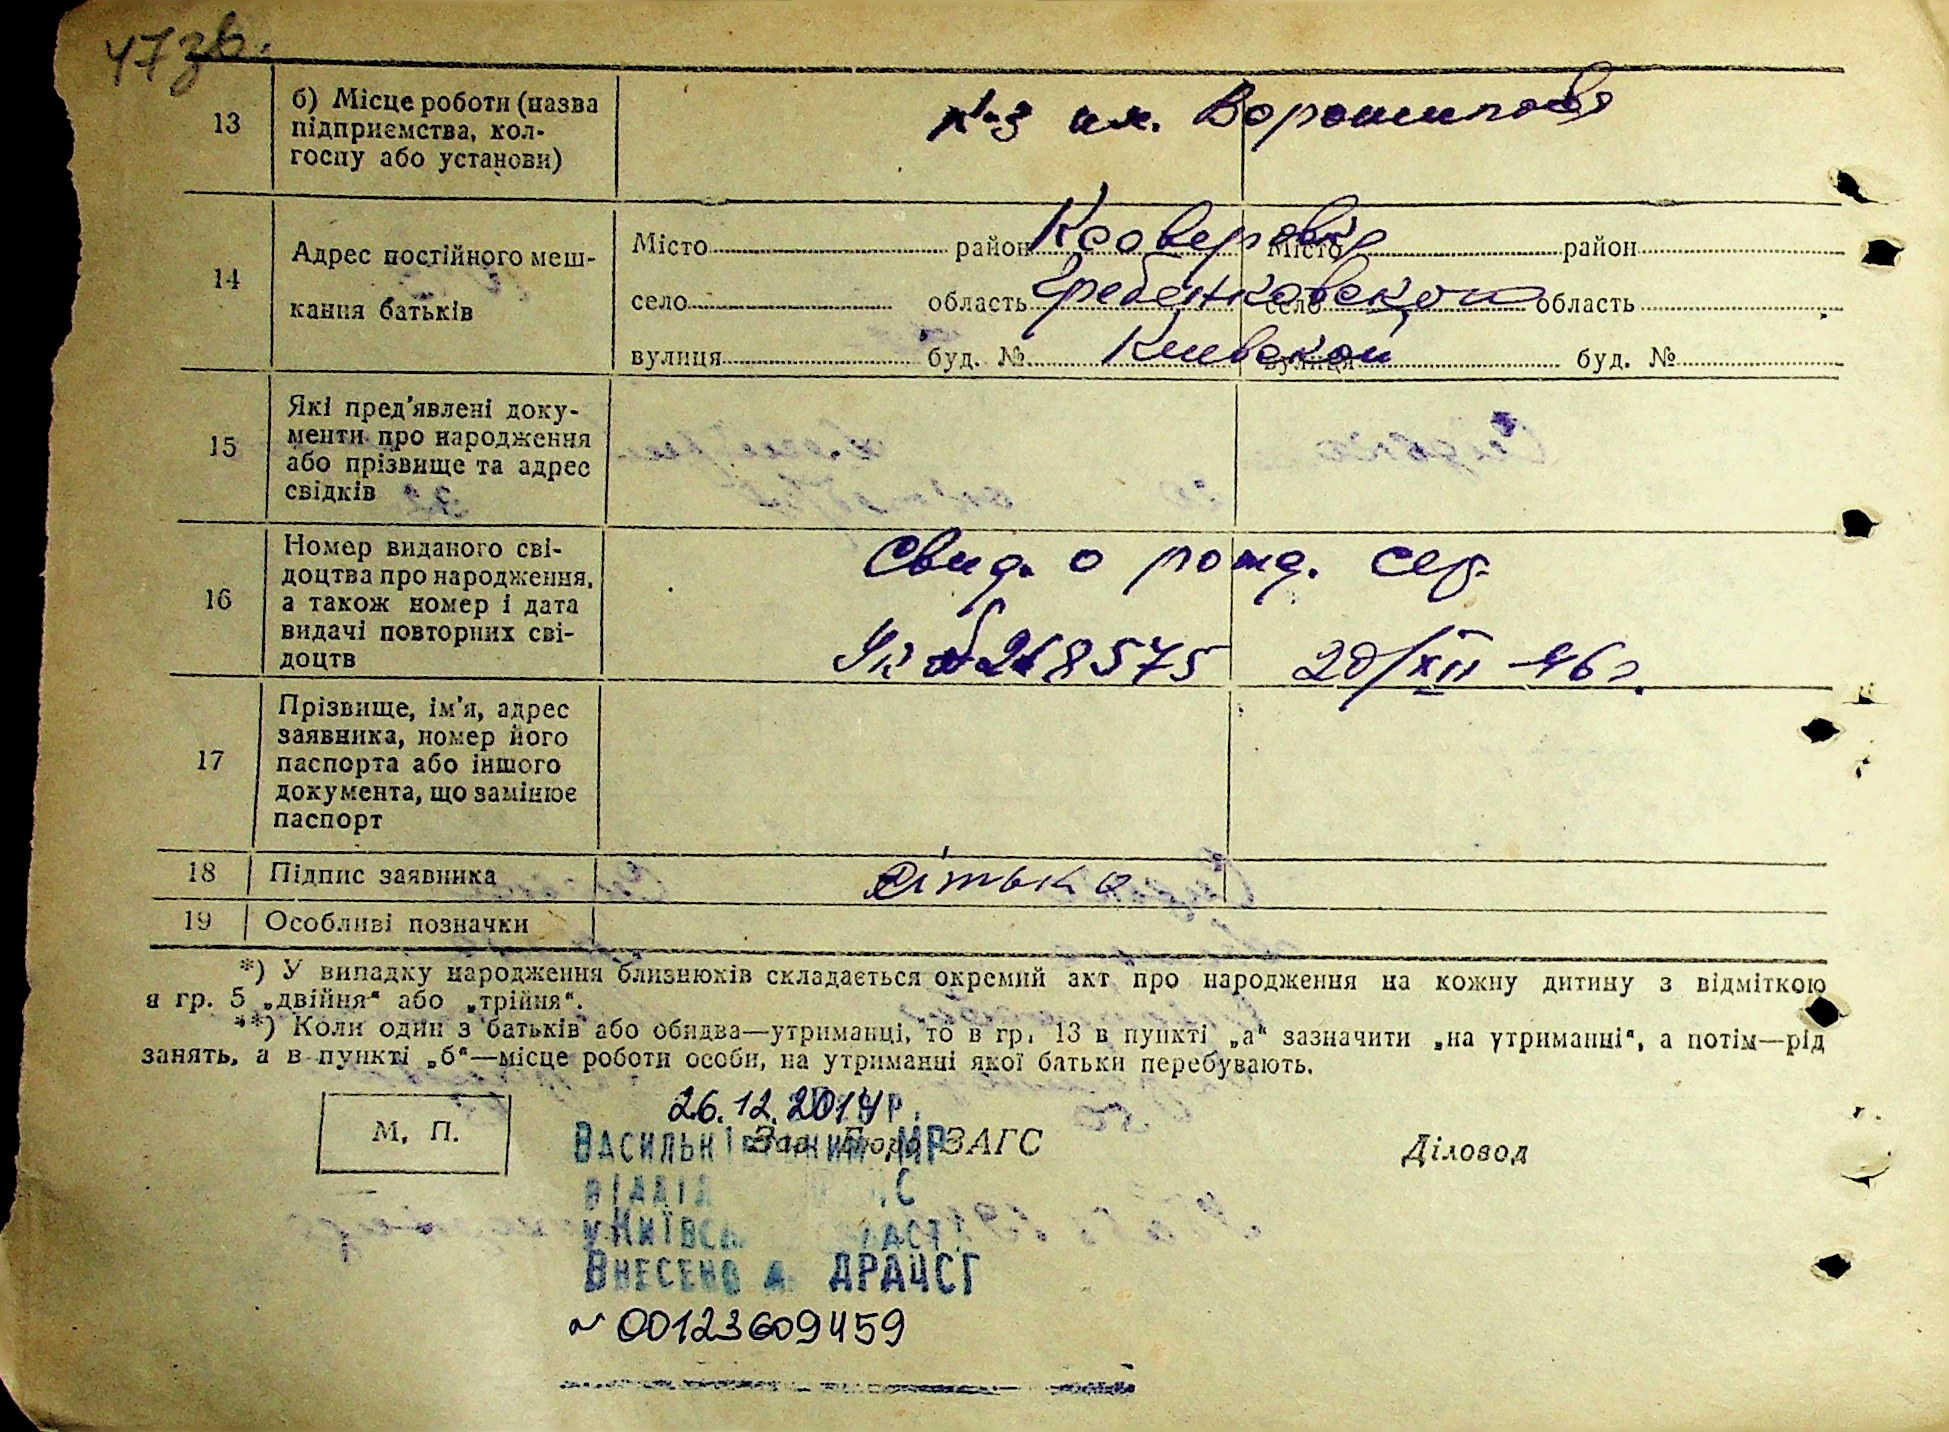 47 зв.
13
б) Місце роботи (назва
підприємства, кол-
госпу або установи)
к-з им. Ворошилова
14
Адрес постійного меш-
кання батьків
Місто район Ксаверовка Місто район
село область Гребенковской село область
вулиця буд. № Киевской вулиця буд. №
15
Які пред'явлені доку-
менти про народження
або прізвище та адрес
свідків
16
Номер виданого сві-
доцтва про народження,
а також номер і дата
видачі повторних сві-
доцтв
Свид. о рожд. сер.
20/XII-46 г.
17
Прізвище, ім'я, адрес
заявника, номер його
паспорта або іншого
документа, що замінює
паспорт
18 Підпис заявника
19 Особливі позначки
*) У випадку народження близнюків складається окремий акт про народження на кожну дитину з відміткою
в гр. 5 „двійня“ або „трійня“.
**) Коли один з батьків або обидва—утриманці, то в гр. 13 в пункті „а“ зазначити „на утриманні“, а потім—рід
занять, а в пункті „б“—місце роботи особи, на утриманні якої батьки перебувають.
М. П.
26.12.2014р.
Зав. Бюро ЗАГС
Діловод
Внесено ДРАЦСГ
~ 00123609459